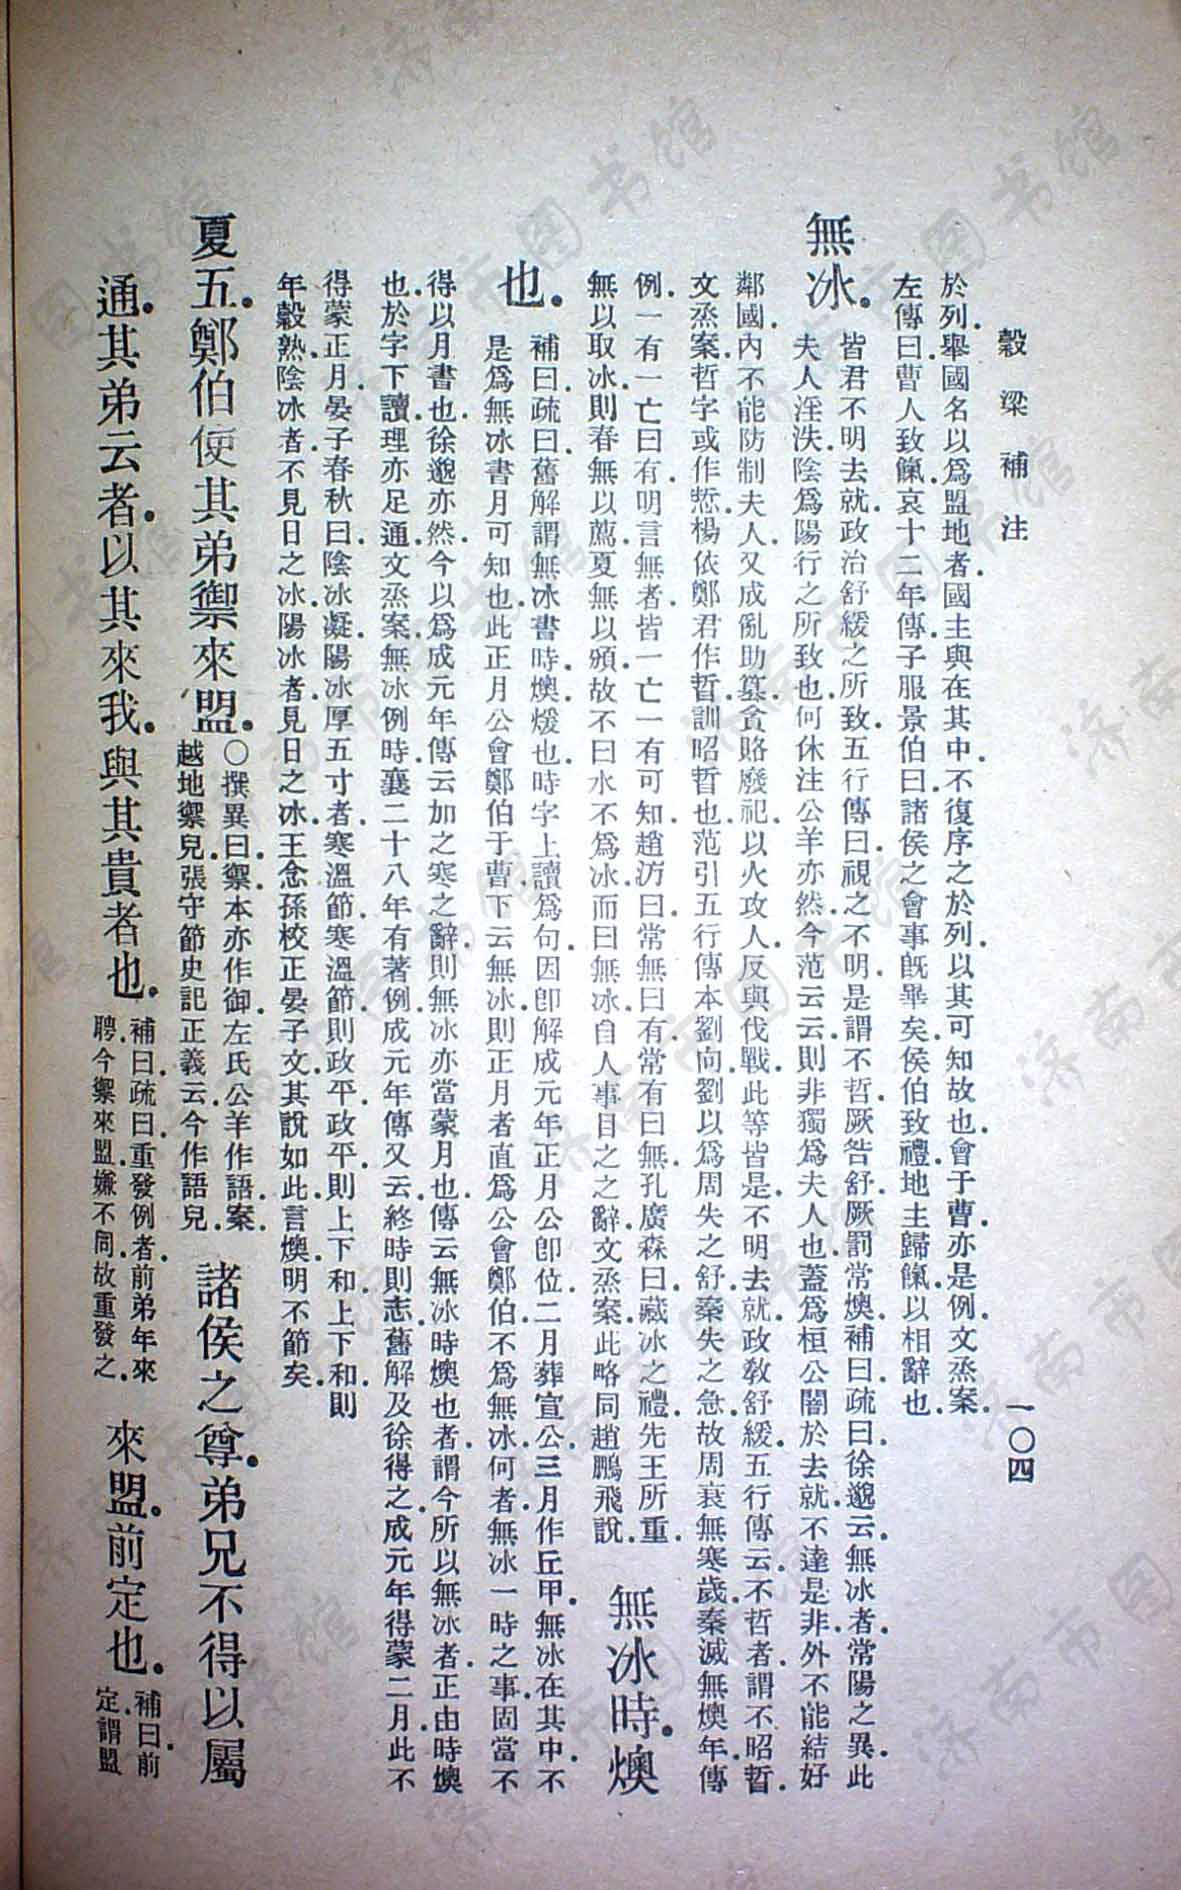 穀梁補注
一〇四
於列舉國名以爲盟地者國主與在其中不復序之於列以其可知故也會于曹亦是例文烝案
左傳曰曹人致餼哀十二年傳子服景伯曰諸侯之會事旣畢矣侯伯致禮地主歸餼以相辭也
無冰
皆君不明去就政治舒緩之所致五行傳曰視之不明是謂不哲厥咎舒厥罰常燠補曰疏曰徐邈云無冰者常陽之異此
夫人淫泆陰爲陽行之所致也何休注公羊亦然今范云云則非獨爲夫人也蓋爲桓公闇於去就不達是非外不能結好
鄰國內不能防制夫人又成亂助篡貪賂廢祀以火攻人反與伐戰此等皆是不明去就政敎舒緩五行傳云不哲者謂不昭晢
文烝案哲字或作悊楊依鄭君作晢訓昭晢也范引五行傳本劉向劉以爲周失之舒秦失之急故周衰無寒歲秦滅無燠年傳
例一有一亡曰有明言無者皆一亡一有可知趙汸曰常無曰有常有曰無孔廣森曰藏冰之禮先王所重
無以取冰則春無以薦夏無以頒故不曰水不爲冰而曰無冰自人事目之之辭文烝案此略同趙鵬飛說
無冰時燠
也
補曰疏曰舊解謂無冰書時燠煖也時字上讀爲句因卽解成元年正月公卽位二月葬宣公三月作丘甲無冰在其中不
是爲無冰書月可知也此正月公會鄭伯于曹下云無冰則正月者直爲公會鄭伯不爲無冰何者無冰一時之事固當不
得以月書也徐邈亦然今以爲成元年傳云加之寒之辭則無冰亦當蒙月也傳云無冰時燠也者謂今所以無冰者正由時燠
也於字下讀理亦足通文烝案無冰例時襄二十八年有著例成元年傳又云終時則志舊解及徐得之成元年得蒙二月此不
得蒙正月晏子春秋曰陰冰凝陽冰厚五寸者寒溫節寒溫節則政平政平則上下和上下和則
年穀熟陰冰者不見日之冰陽冰者見日之冰王念孫校正晏子文其說如此言燠明不節矣
夏五鄭伯使其弟禦來盟
〇撰異曰禦本亦作御左氏公羊作語案
越地禦兒張守節史記正義云今作語兒
諸侯之尊弟兄不得以屬
通其弟云者以其來我與其貴者也
補曰疏曰重發例者前弟年來
聘今禦來盟嫌不同故重發之
來盟前定也
補曰前
定謂盟